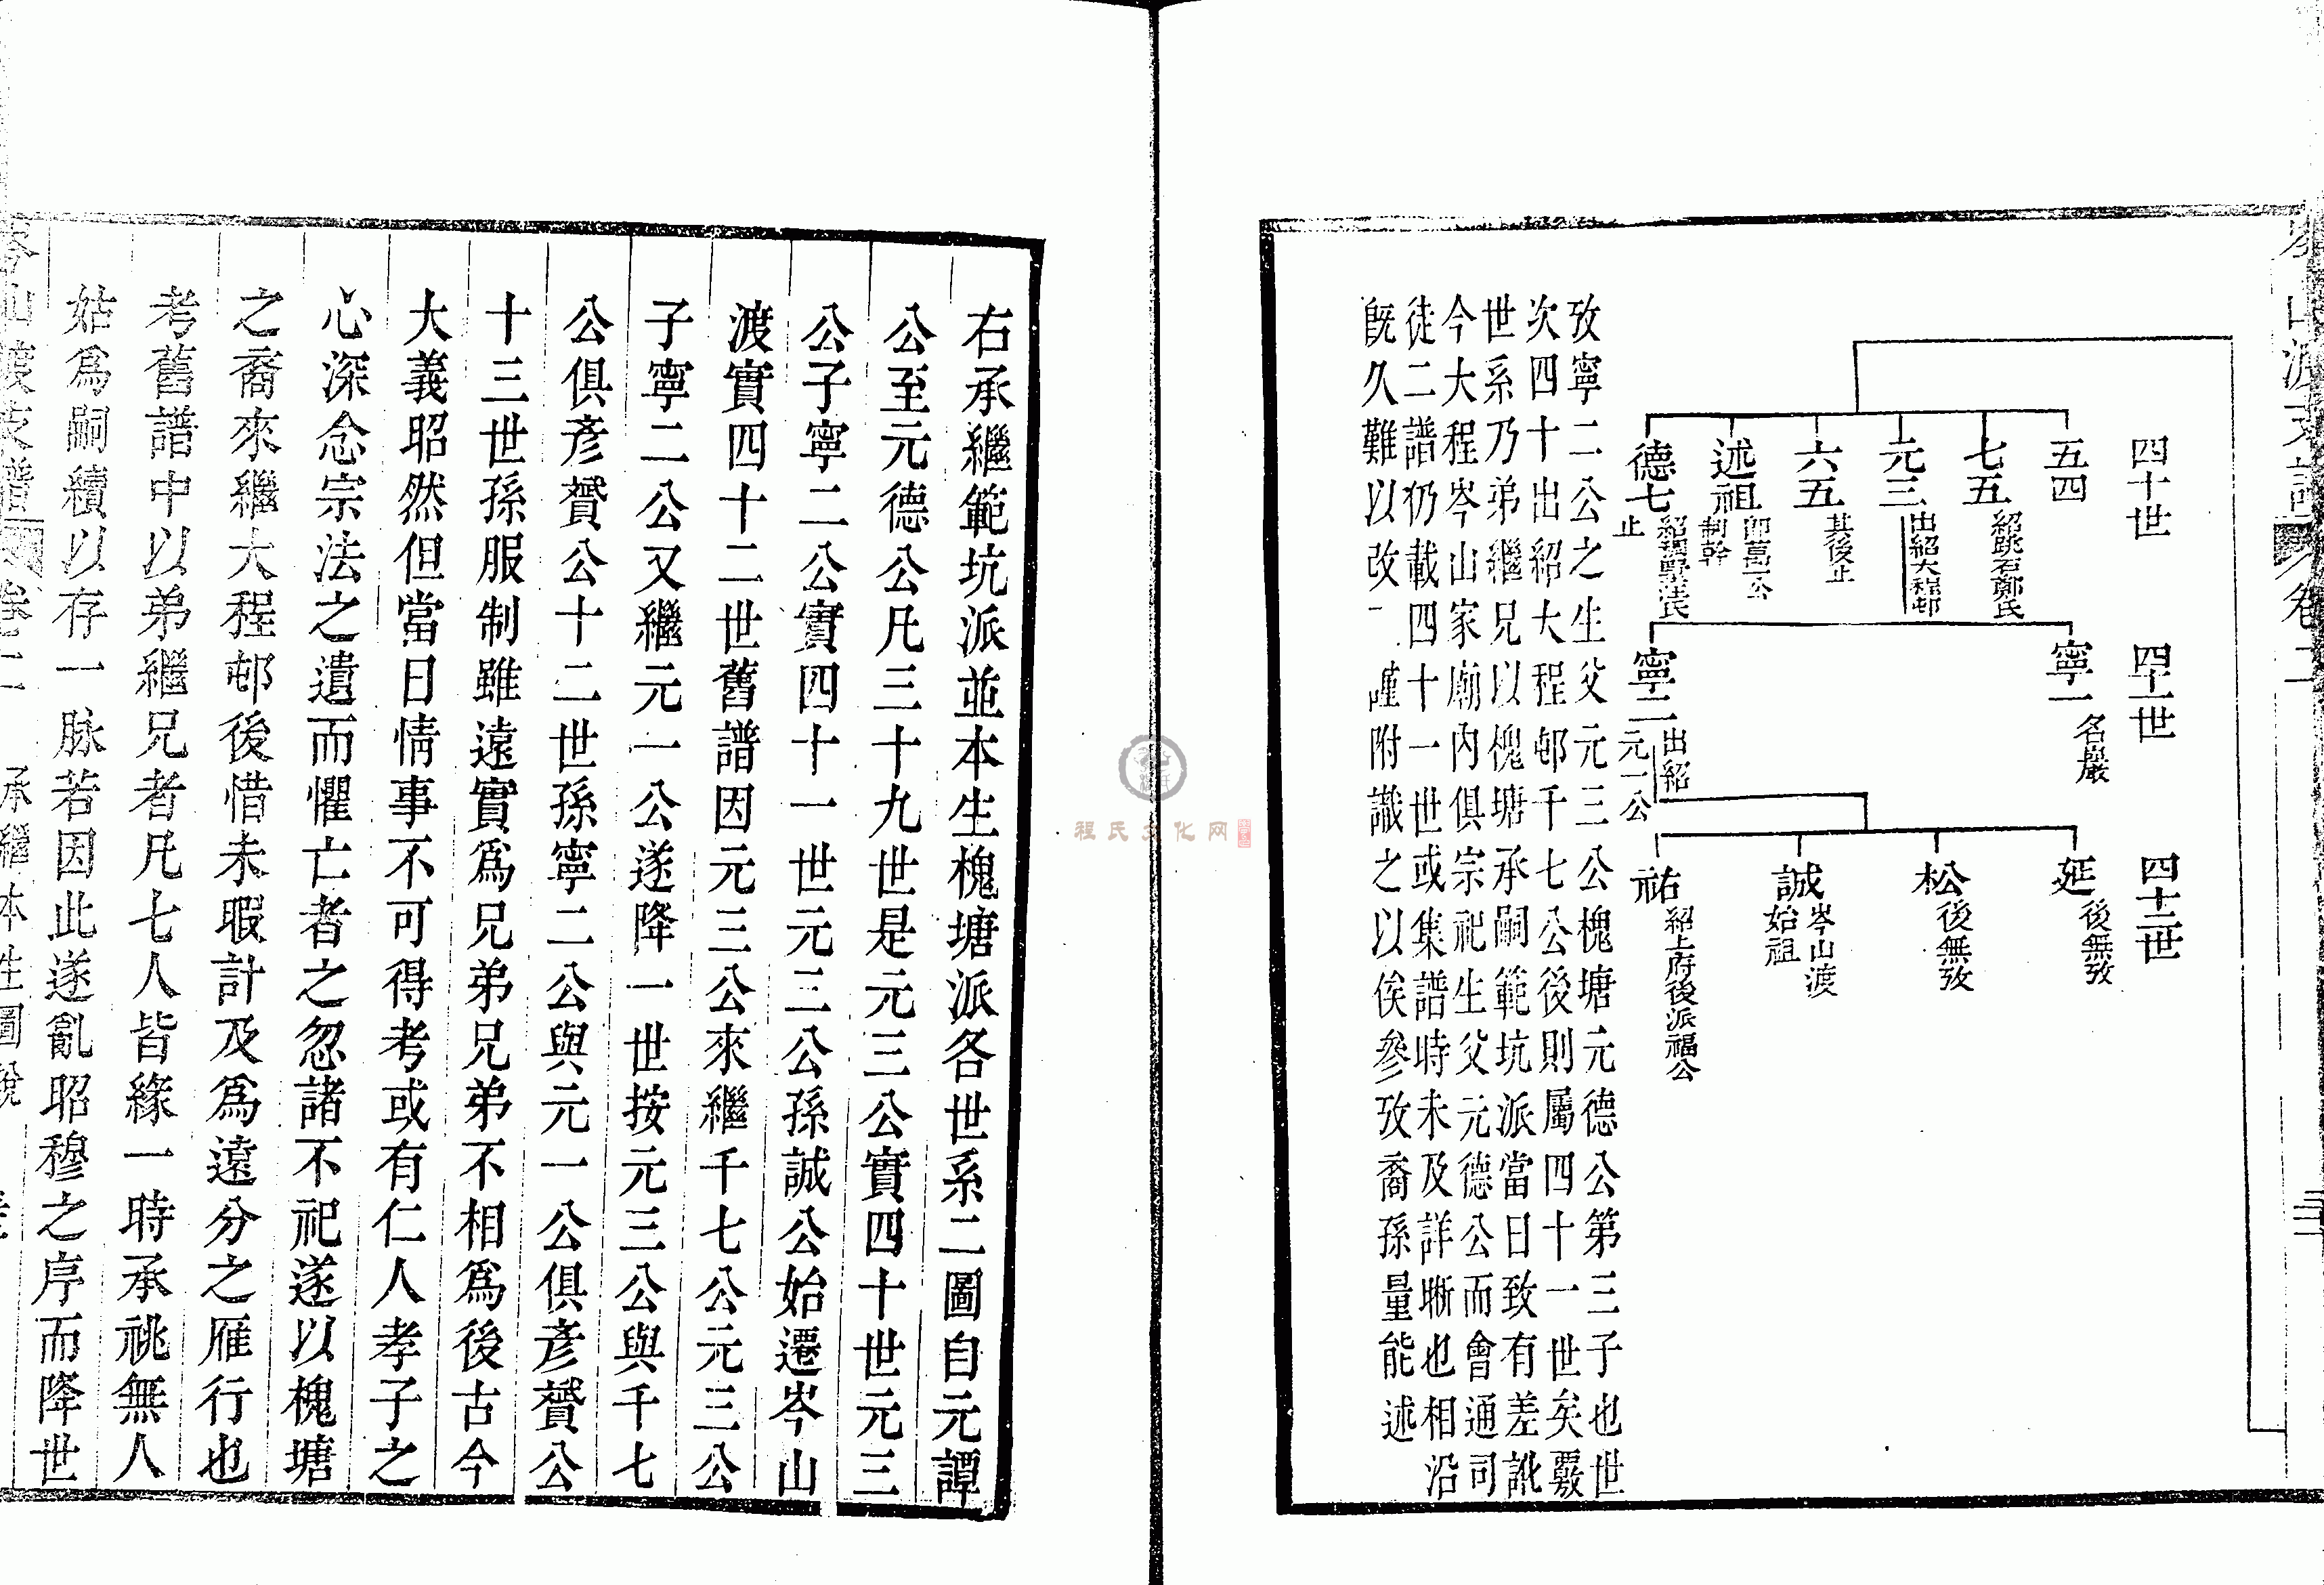 岑山渡支譜
卷二
四十世
五四
七五
紹跳石鄭氏
元三
出紹大程邨
六五
其後止
述祖
即萬一公
制幹
德七
止
四十一世
寧一
名巖
寧二
出紹
元一公
四十二世
延
後無攷
松
後無攷
誠
岑山渡
始祖
祐
紹上府後派福公
攷寧二公之生父元三公槐塘元德公第三子也世
次四十出紹大程邨千七公後則屬四十一世矣覈
世系乃弟繼兄以槐塘承嗣範坑派當日致有差訛
今大程岑山家廟內俱宗祀生父元德公而會通司
徒二譜仍載四十一世或集譜時未及詳晣也相沿
旣久難以改謹附識之以俟參攷裔孫量能述
右承繼範坑派並本生槐塘派各世系二圖自元譚
公至元德公凡三十九世是元三公實四十世元三
公子寧二公實四十一世元三公孫誠公始遷岑山
渡實四十二世舊譜因元三公來繼千七公元三公
子寧二公又繼元一公遂降一世按元三公與千七
公俱彥贇公十二世孫寧二公與元一公俱彥贇公
十三世孫服制雖遠實爲兄弟兄弟不相爲後古今
大義昭然但當日情事不可得考或有仁人孝子之
心深念宗法之遺而懼亡者之忽諸不祀遂以槐塘
之裔來繼大程邨後惜未暇計及爲遠分之雁行也
考舊譜中以弟繼兄者凡七人皆緣一時承祧無人
姑爲嗣續以存一脉若因此遂亂昭穆之序而降世
岑山渡支譜
卷二
承繼本生圖說
程氏文化网